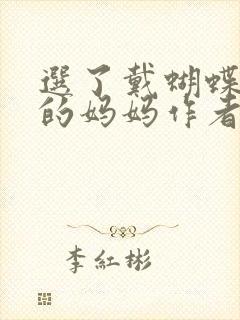 選了戴蝴蝶
的妈妈作者
李紅彬